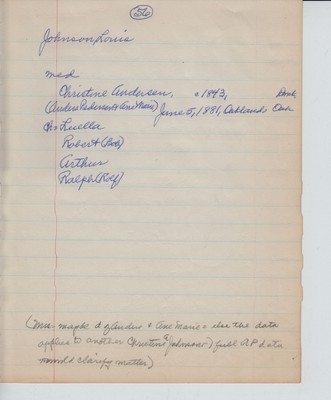 26
Johnson, Louis
md
Christine Andersen, 1843, Denk
(Anders Pedersen & Ane Marie) June 5, 1881, Oakland, Oak
Ch: Luella
Robert (Bob)
Arthur
Ralph (Rolf)
maybe & Ane Marie or else the data
applies to another Christine & Johnson) full A P data
would clarify matter)